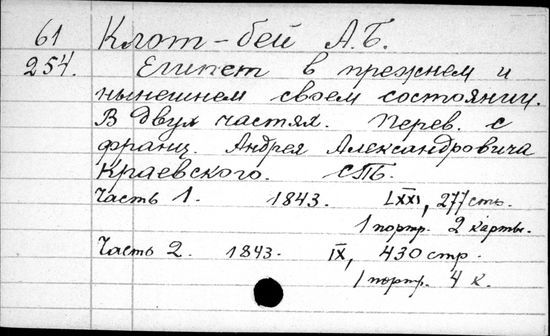 61 Клот-бей А.Б.
254. Египет в прежнем и
нынешнем своем состоянии.
В двух частях. Перев. с
франц. Андрея Александровича
Краевского. СПБ.
Часть 1. 1843. LXXI, 277 стр.
1 портр. 2 карты.
Часть 2. 1843. IX, 430 стр.
1 портр. 4 к.